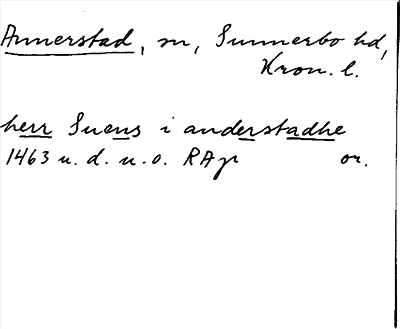 Annerstad, sn, Sunnerbo hd,
Kron. l.
herr Suens i anderstadhe
1463 u. d. u. o. RAp or.